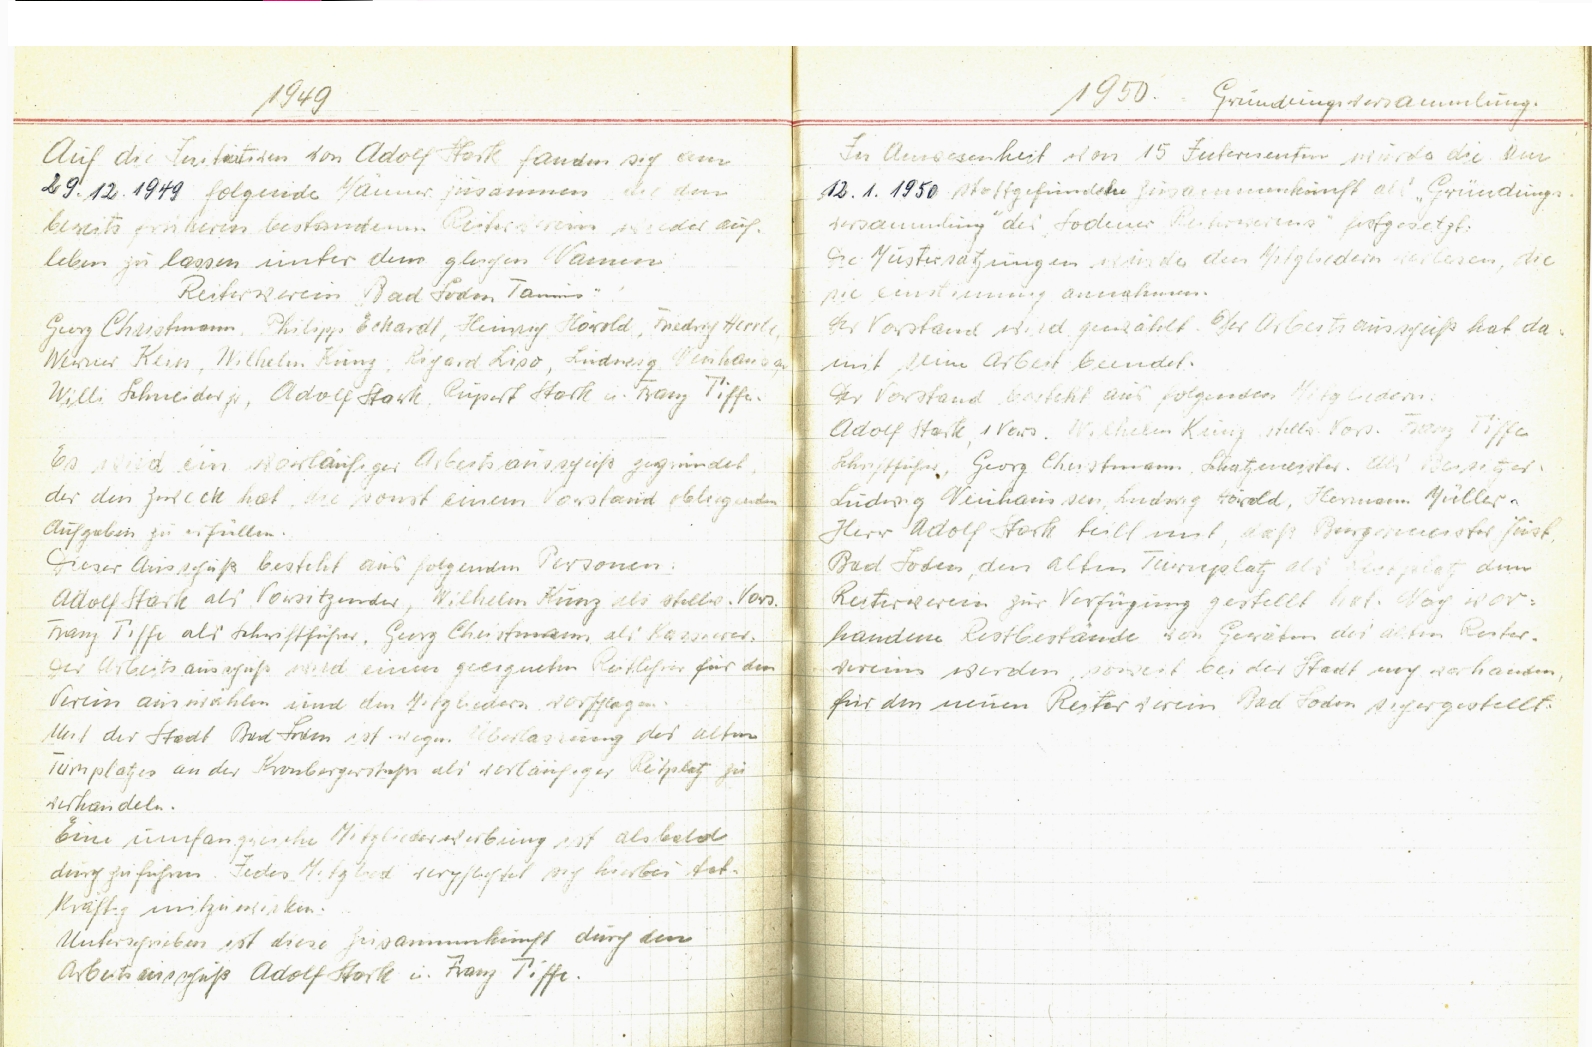 1949
Auf die Initiativen von Adolf Stark fanden sich am
29.12.1949 folgende Männer zusammen den
bereits früheren bestandenen Reiterverein wieder auf-
leben zu lassen unter dem gleichen Namen
Reiterverein Bad Soden Taunus"
Georg Christmann, Philipp Eckardt, Heinrich Hörold, Friedrich
Werner Kern, Wilhelm Kunz, Richard Liso, Ludwig Neuhausen,
Willi Schneider jr, Adolf Stark, Rupert Stark u. Franz Tiffe.
Es wird ein vorläufiger Arbeitsausschuß gegründet,
der den Zweck hat, die sonst einem Vorstand obliegenden
Aufgaben zu erfüllen.
Dieser Ausschuß besteht aus folgenden Personen:
Adolf Stark als Vorsitzender, Wilhelm Kunz als stellv. Vors.
Franz Tiffe als Schriftführer, Georg Christmann als Kassierer.
Der Arbeitsausschuß wird einen geeigneten Reitlehrer für den
Verein auswählen und den Mitgliedern vorschlagen.
Mit der Stadt Bad Soden ist wegen Überlassung des alten
Turnplatzes an der Kronbergerstraße als vorläufiger Reitplatz zu
verhandeln.
Eine umfangreiche Mitgliederwerbung ist alsbald
durchzuführen. Jedes Mitglied verpflichtet sich hierbei tat-
kräftig mitzuwirken.
Unterschrieben ist diese Zusammenkunft durch den
Arbeitsausschuß Adolf Stark u. Franz Tiffe.
1950. Gründungsversammlung.
In Anwesenheit von 15 Interessenten wurde die am
12.1.1950 stattgefundene Zusammenkunft als "Gründungs-
versammlung" des "Sodener Reitervereins" festgesetzt.
Die Mustersatzungen wurde den Mitgliedern verlesen, die
sie einstimmig annahmen.
Der Vorstand wird gewählt. Der Arbeitsausschuß hat da-
mit seine Arbeit beendet.
Der Vorstand besteht aus folgenden Mitgliedern:
Adolf Stark, 1 Vors. Wilhelm Kunz stellv. Vors. Franz Tiffe
Schriftführer, Georg Christmann Schatzmeister. Als Beisitzer.
Ludwig Neuhausen, Ludwig Hörold, Hermann Müller.
Herr Adolf Stark teilt mit, daß Bürgermeister
Bad Soden, den alten Turnplatz als dem
Reiterverein zur Verfügung gestellt hat. Noch vor-
handene Restbestände von Geräten des alten Reiter-
vereins werden, soweit bei der Stadt noch vorhanden,
für den neuen Reiterverein Bad Soden sichergestellt.